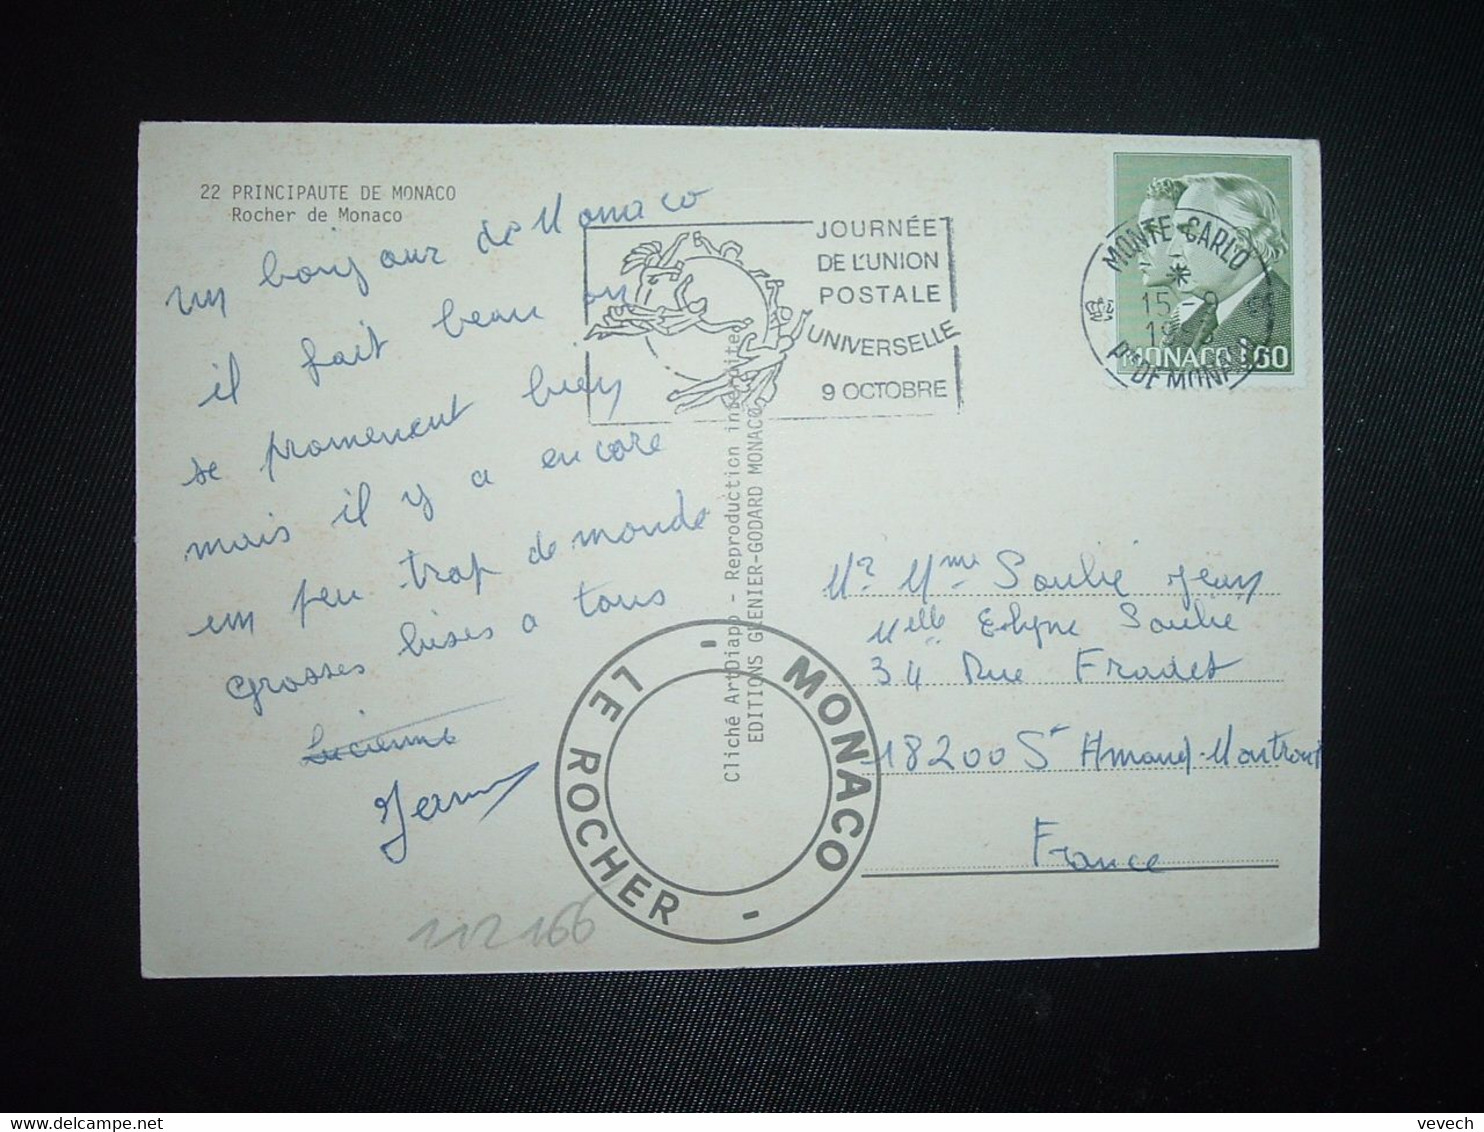 22 PRINCIPAUTE DE MONACO
Rocher de Monaco
un bonjour de Monaco
il fait beau on
se promenent bien
mais il y a encore
un peu trop de monde
grosses bises a tous
Lucienne
JOURNÉE
DE L'UNION
POSTALE
UNIVERSELLE
9 OCTOBRE
MONTE-CARLO
15 -9
Pté DE MONACO
MONACO 1,60
Cliché ArtDiapo - Reproduction interdite
EDITIONS GRENIER-GODARD MONACO
Mr Mme Soulié Jean
Melle Soulié
34 Rue Fradet
18200 St Amand-Montrond
France
- MONACO - LE ROCHER
112166
vevech